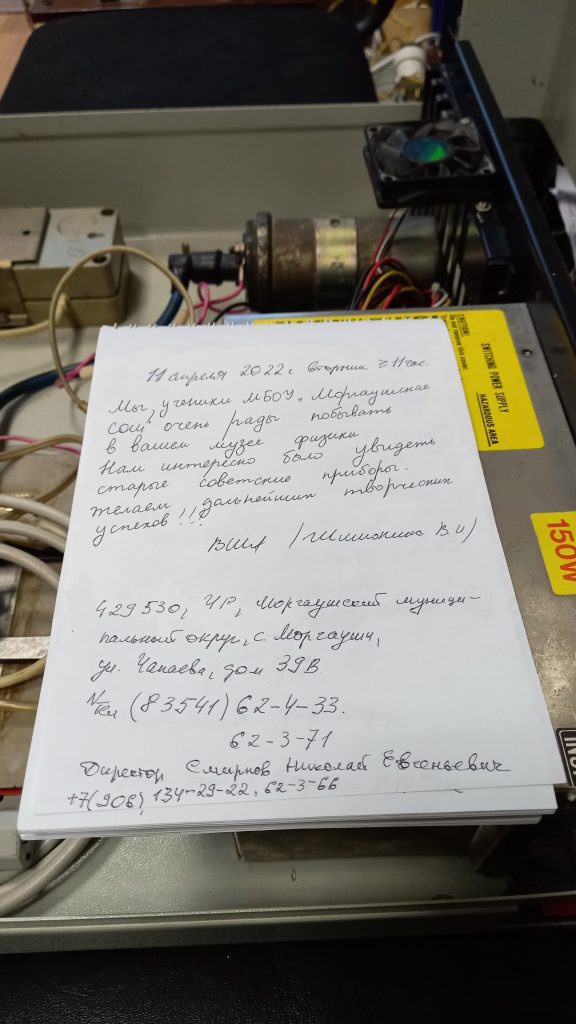 11 апреля 2022 г. вторник ≥ 11 час.
Мы, ученики МБОУ "Моргаушская
СОШ" очень рады побывать
в вашем музее физики.
Нам интересно было увидеть
старые советские приборы.
Желаем дальнейших творческих
успехов!!!
429530, ЧР, Моргаушский муници-
пальный округ, с. Моргауши,
ул. Чапаева, дом 39В
№тел (83541) 62-4-33.
62-3-71
Директор Смирнов Николай Евгеньевич
+7(906) 134-29-22, 62-3-66
CAUTION!
Do not remove this cover.
SWITCHING POWER SUPPLY
HAZARDOUS AREA
150W